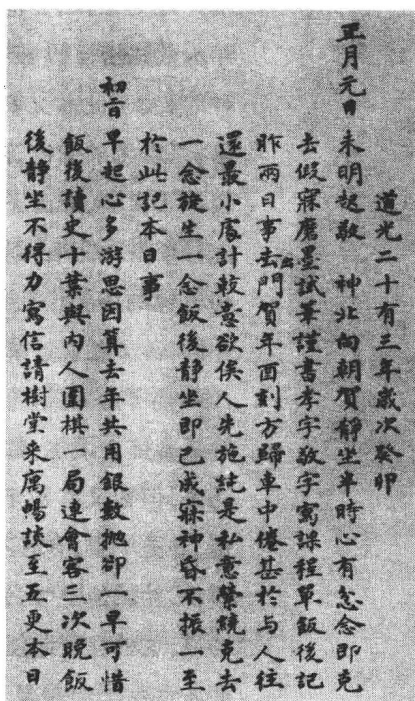 道光二十有三年歲次癸卯
正月元日 未明起敬 神北向朝賀靜坐半時心有忿念即克
去假寐磨墨試筆謹書孝字敬字寫課程單飯後記
昨兩日事出門賀年酉刻方歸車中倦甚於与人往
還最小處計較意欲俟人先施純是私意縈繞克去
一念旋生一念飯後靜坐即已成寐神昏不振一至
於此記本日事
初二日早起心多游思因算去年共用銀數拋卻一早可惜
飯後讀史十葉與內人圍棋一局連會客三次晚飯
後靜坐不得力寫信請樹堂來寓暢談至五更本日